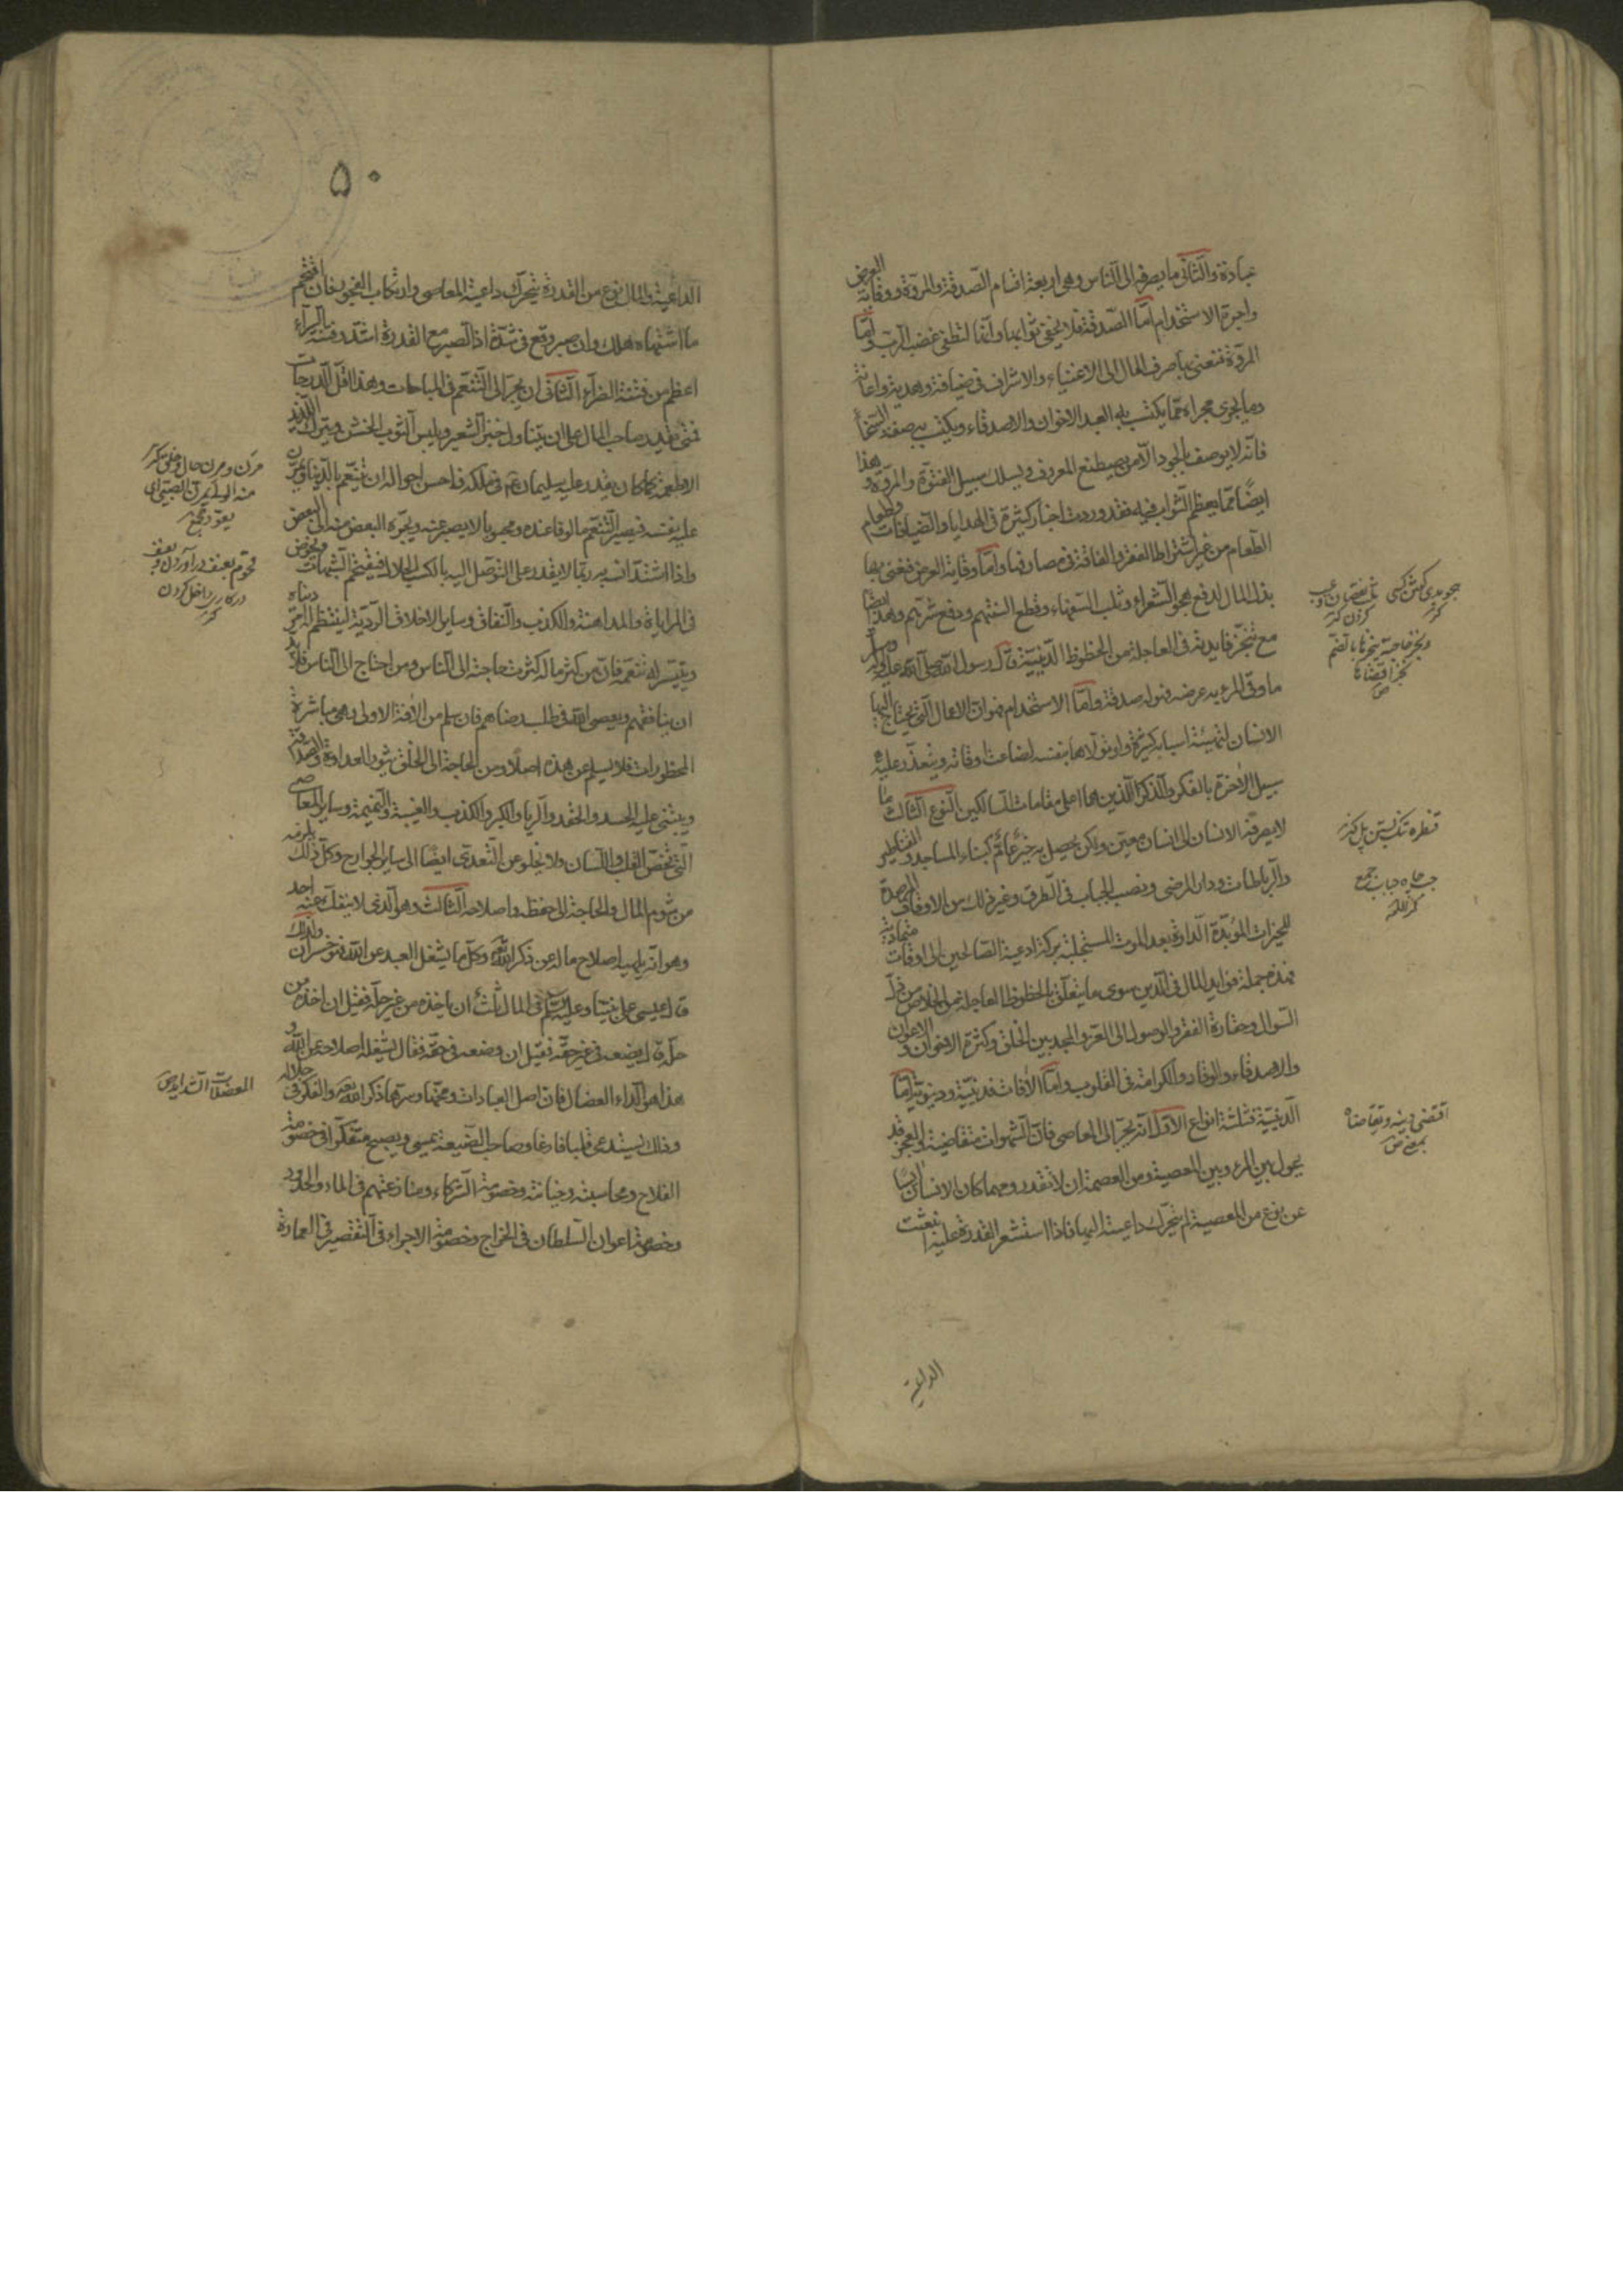 عبادة والثانى ما يصرفه الى الناس وهى اربعة اقسام الصدقة والمروة ووقاية العرض
واجرة الاستخدام اما الصدقة فلا يخفى ثوابها وانها لتطفى غضب الرب واما
المروة فنعنى بها صرف المال الى الاغنياء والاشراف فى ضيافة وهدية واعانة
وما يجرى مجراه مما يكتسب به العبد الاخوان والاصدقاء ويكتسب به صفة السخا
فانه لا يوصف بالجود الا من يصطنع المعروف ويسلك سبيل الفتوة والمروة وهذا
ايضًا مما يعظم الثواب فيه فقد وردت اخبار كثيرة فى الهدايا والضيافات واطعام
الطعام من غير اشتراط الفقر والفاقة فى مصارفها واما وقاية العرض فنعنى بها
بذل المال لدفع هجو الشعراء وثلب السفهاء وقطع السنتهم ودفع شرهم وهذا ايضا
مع تنجز فايدته فى العاجلة من الحظوظ الدينية قال رسول الله صلى الله عليه وآله
ما وقى المرء به عرضه فهو له صدقة واما الاستخدام فهو ان الاعمال التى يحتاج اليها
الانسان لتهيئة اسبابه كثيرة ولو تولاها بنفسه لضاعت اوقاته ويتعذر عليه
سبيل الآخرة بالفكر والذكر اللذين هما اعلى مقامات السالكين النوع الثالث ما
لا يصرفه الانسان الى انسان معين ولكن يحصل به خير عام كبناء المساجد والقناطير
والرباطات ودار المرضى ونصب الجباب فى الطرق وغير ذلك من الاوقاف المرصدة
للخيرات المؤبدة الدارة بعد الموت المستجلبة بركة ادعية الصالحين الى اوقات متمادية
فهذه جملة فوايد المال فى الدين سوى ما يتعلق بالحظوظ العاجلة من الخلاص من ذل
السوال وحقارة الفقر والوصول الى العز والمجد بين الخلق وكثرة الاخوان والاعوان
والاصدقاء والوقار والكرامة فى القلوب واما الآفات فدينية ودنيوية اما
الدينية فثلثة انواع الاول انه يجر الى المعاصى فان الشهوات متقاضية والعجز قد
يحول بين المرء وبين المعصية ومن العصمة ان لا تقدر ومهما كان الانسان آيسًا
عن نوع من المعصية لم تتحرك داعيته اليها فاذا استشعر القدرة عليه انبعثت
الداعية
قنطره تكبستن پل كنز
چاه جباب جمع
كنز اللغة
اقتضى دينه وتقاضاه
بمعنى ص
٥٠
الداعية والمال نوع من القدرة يتحرك داعية المعاصى وارتكاب الفجور فان اقتحم
ما اشتهاه هلك وان صبر وقع فى شدة اذ الصبر مع القدرة اشد وفتنة السراء
اعظم من فتنة الضراء الثانى ان يجر الى التنعم فى المباحات وهذا اقل الدرجات
فمتى يقدر صاحب المال على ان يتناول خبز الشعير ويلبس الثوب الخشن ويترك اللذيذ
الاطعمة كما كان يقدر عليه سليمان ع فى ملكه فاحسن احواله ان يتنعم بالدنيا ويمرن
عليه نفسه فيصير التنعم مالوفا عنده ومحبوبا لا يصبر عنه ويجره البعض منه الى البعض
واذا اشتد انسه به ربما لا يقدر على التوصل اليه بالكسب الحلال فيقتحم الشبهات ويخوض
فى المراياة والمداهنة والكذب والنفاق وساير الاخلاق الردية لينتظم له امر دنياه
ويتيسر له تنعمه فان من كثر ماله كثرت حاجته الى الناس ومن احتاج الى الناس فلا بد
ان ينافقهم ويعصى الله فى طلب رضاهم فان سلم من الآفة الاولى وهى مباشرة
المحظورات فلا يسلم عن هذه اصلا ومن الحاجة الى الخلق تثور العداوة والصداقة
ويبتنى عليه الحسد والحقد والريا والكبر والكذب والغيبة والنميمة وساير المعاصى
التى تخص القلب واللسان ولا يخلو عن التعدى ايضًا الى ساير الجوارح وكل ذلك يلزمه
من شوم المال والحاجة الى حفظه واصلاحه الثالث وهو الذى لا ينفك عنه احد
وهو انه يلهيه اصلاح ماله عن ذكر الله تعالى وكل ما يشغل العبد عن الله فهو خسران ولذلك
قال عيسى على نبينا وعليه السلم فى المال ثلث ان ياخذه من غير حله فقيل ان اخذه من
حله قال يضعه فى غير حقه فقيل ان وضعه فى حقه فقال يشغله اصلاحه عن الله و
هذا هو الداء العضال فان اصل العبادات ومخها وسرها ذكر الله تعالى والفكر فى جلاله
وذلك يستدعى قلبا فارغا وصاحب الضيعة يمسى ويصبح متفكرا فى خصومة
الفلاح ومحاسبته وخيانته وخصومة الشركاء ومنازعتهم فى الماء والحدود
وخصومة اعوان السلطان فى الخراج وخصومة الاجراء فى التقصير فى العمارة
المعضلات الشدايد ص